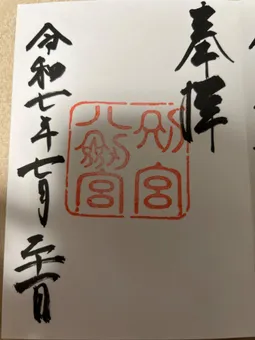 奉拝
別宮
八剱宮
令和七年七月二十一日